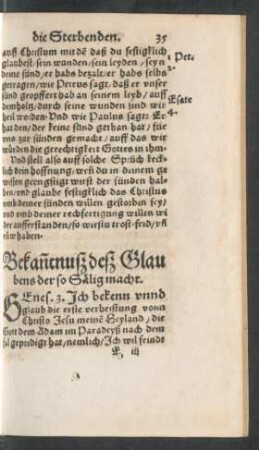 die Sterbenden. 35
auff Christum mit dē daß du festigklich
glaubest/ sein wunden/ sein leyden/ seyn
deine sünd/ er habs bezalt/ er habs selbs
getragen/ wie Petrus sagt/ daß er vnser
sünd geopffert hab an seinem leyb/ auff
dem holtz/ durch seine wunden sind wir
heil worden. Vnd wie Paulus sagt: Er
hat den/ der keine sünd gethan hat/ für
vns zur sünden gemacht/ auff das wir
würden die gerechtigkeit Gottes in ihm.
Vnd stell also auff solche Sprüch keck-
lich dein hoffnung/ wen̄ du in deinem ge
wissen geengstigt wirst der sünden hal-
ben/ vnd glaube festigklich das Christus
vmb deiner sünden willen gestorben sey/
vnd vmb deiner rechfertigung willen wi
der aufferstanden/ so wirstu trost/ frid/ vn̄
rüw haben.
1. Pet.
2.
Esaie
Bekan̄tnuß deß Glau
bens der so Sälig macht.
GEnes. 3. Ich bekenn vnnd
glaub die erste verheissung vonn
Christo Jesu meinē Heyland/ die
Gott dem Adam im Paradeyß nach dem
fal gepredigt hat/ nemlich/ Ich wil feindt
E iij